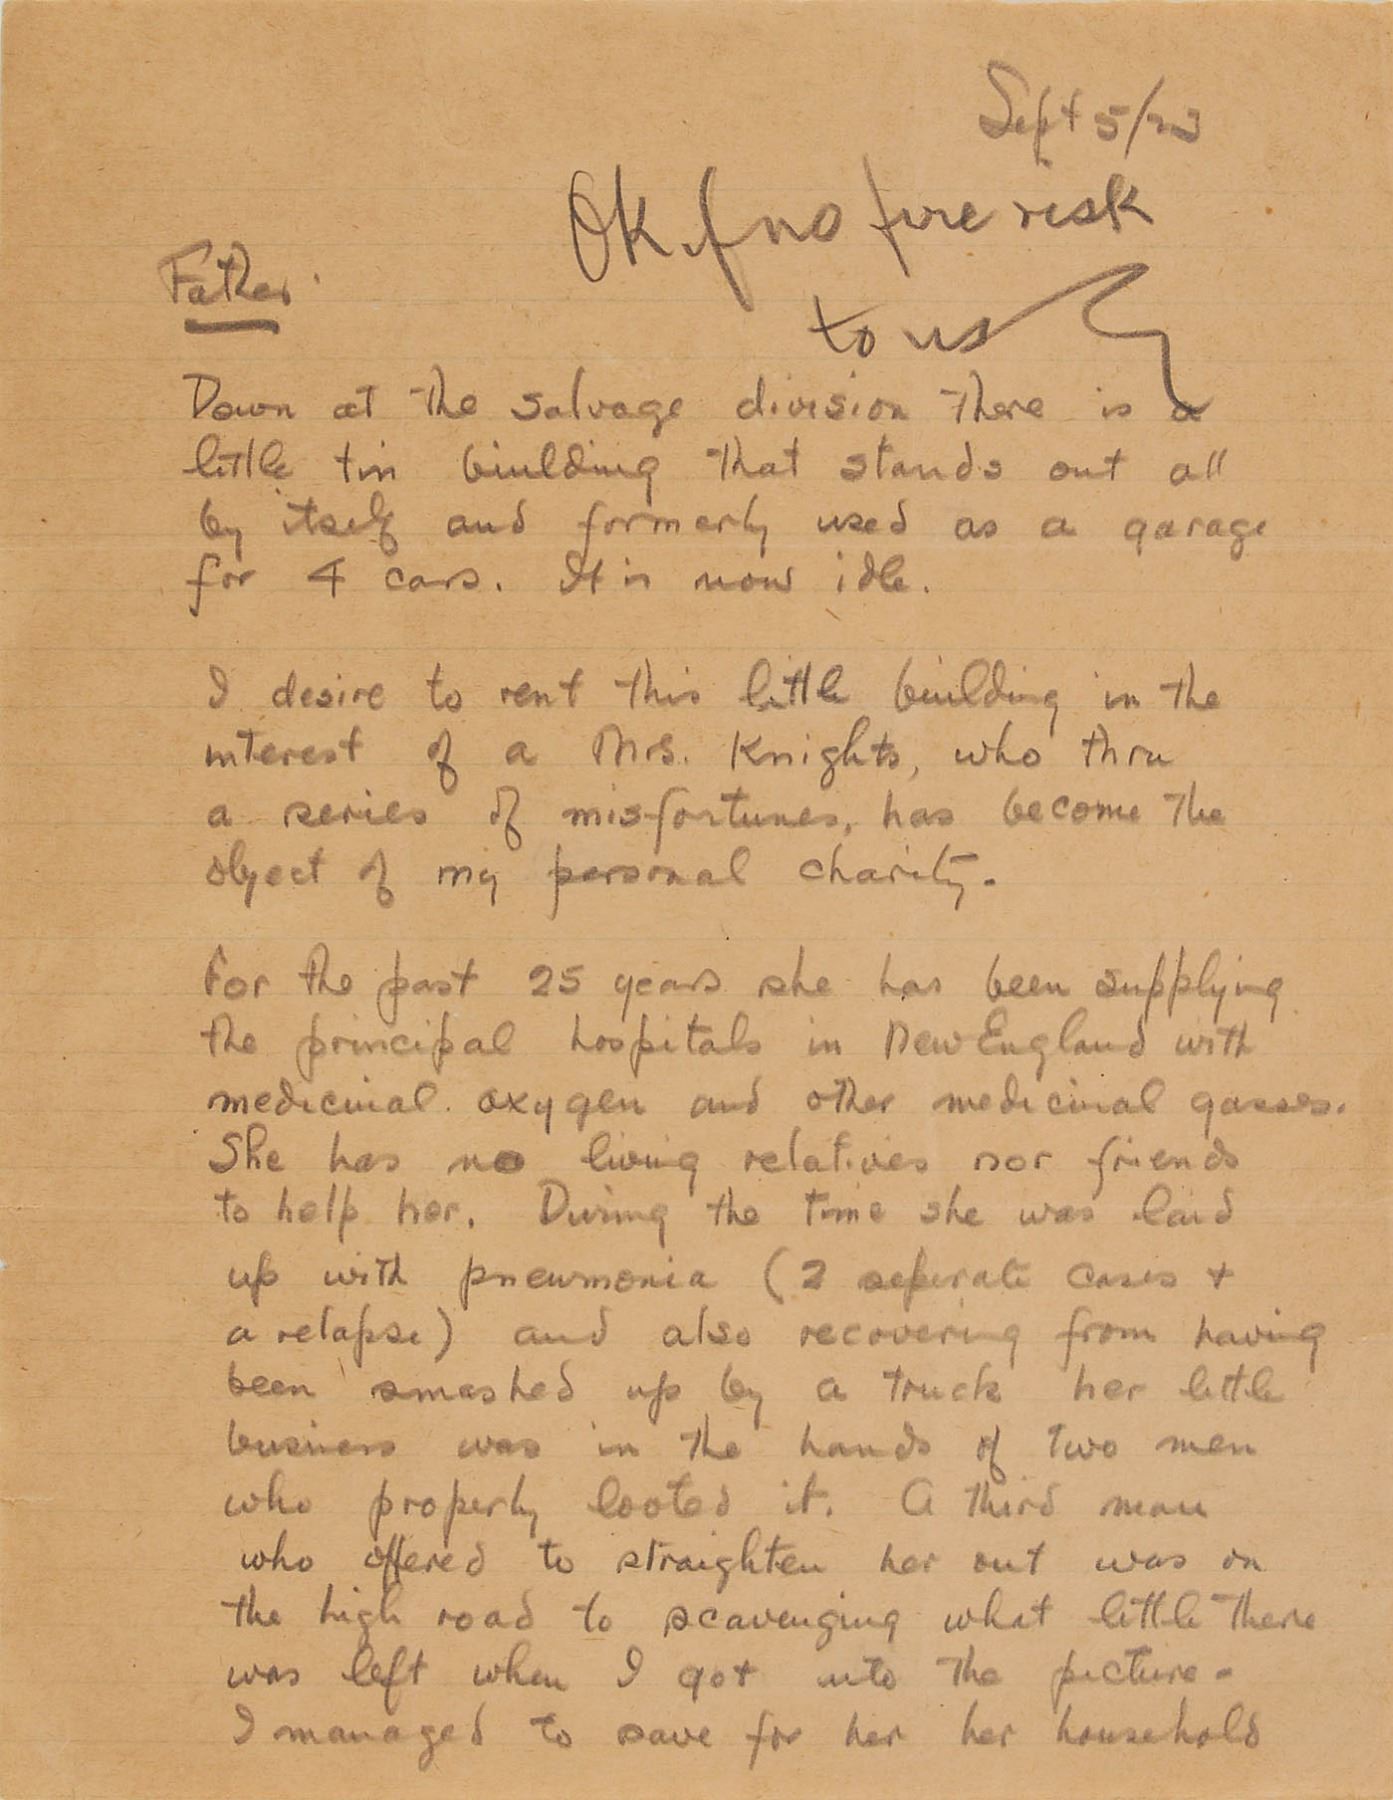 Sept 5/23
OK if no fire risk
to us
Father.
Down at the salvage division there is a
little tin building that stands out all
by itself and formerly used as a garage
for 4 cars. It is now idle.
I desire to rent this little building in the
interest of a Mrs. Knights, who thru
a series of misfortunes, has become the
object of my personal charity.
For the past 25 years she has been supplying
the principal hospitals in New England with
medicinal oxygen and other medicinal gasses.
She has no living relatives nor friends
to help her. During the time she was laid
up with pneumonia (2 seperate cases +
a relapse) and also recovering from having
been smashed up by a truck her little
business was in the hands of two men
who properly looted it. A third man
who offered to straighten her out was on
the high road to scavenging what little there
was left when I got into the picture.
I managed to save for her her household